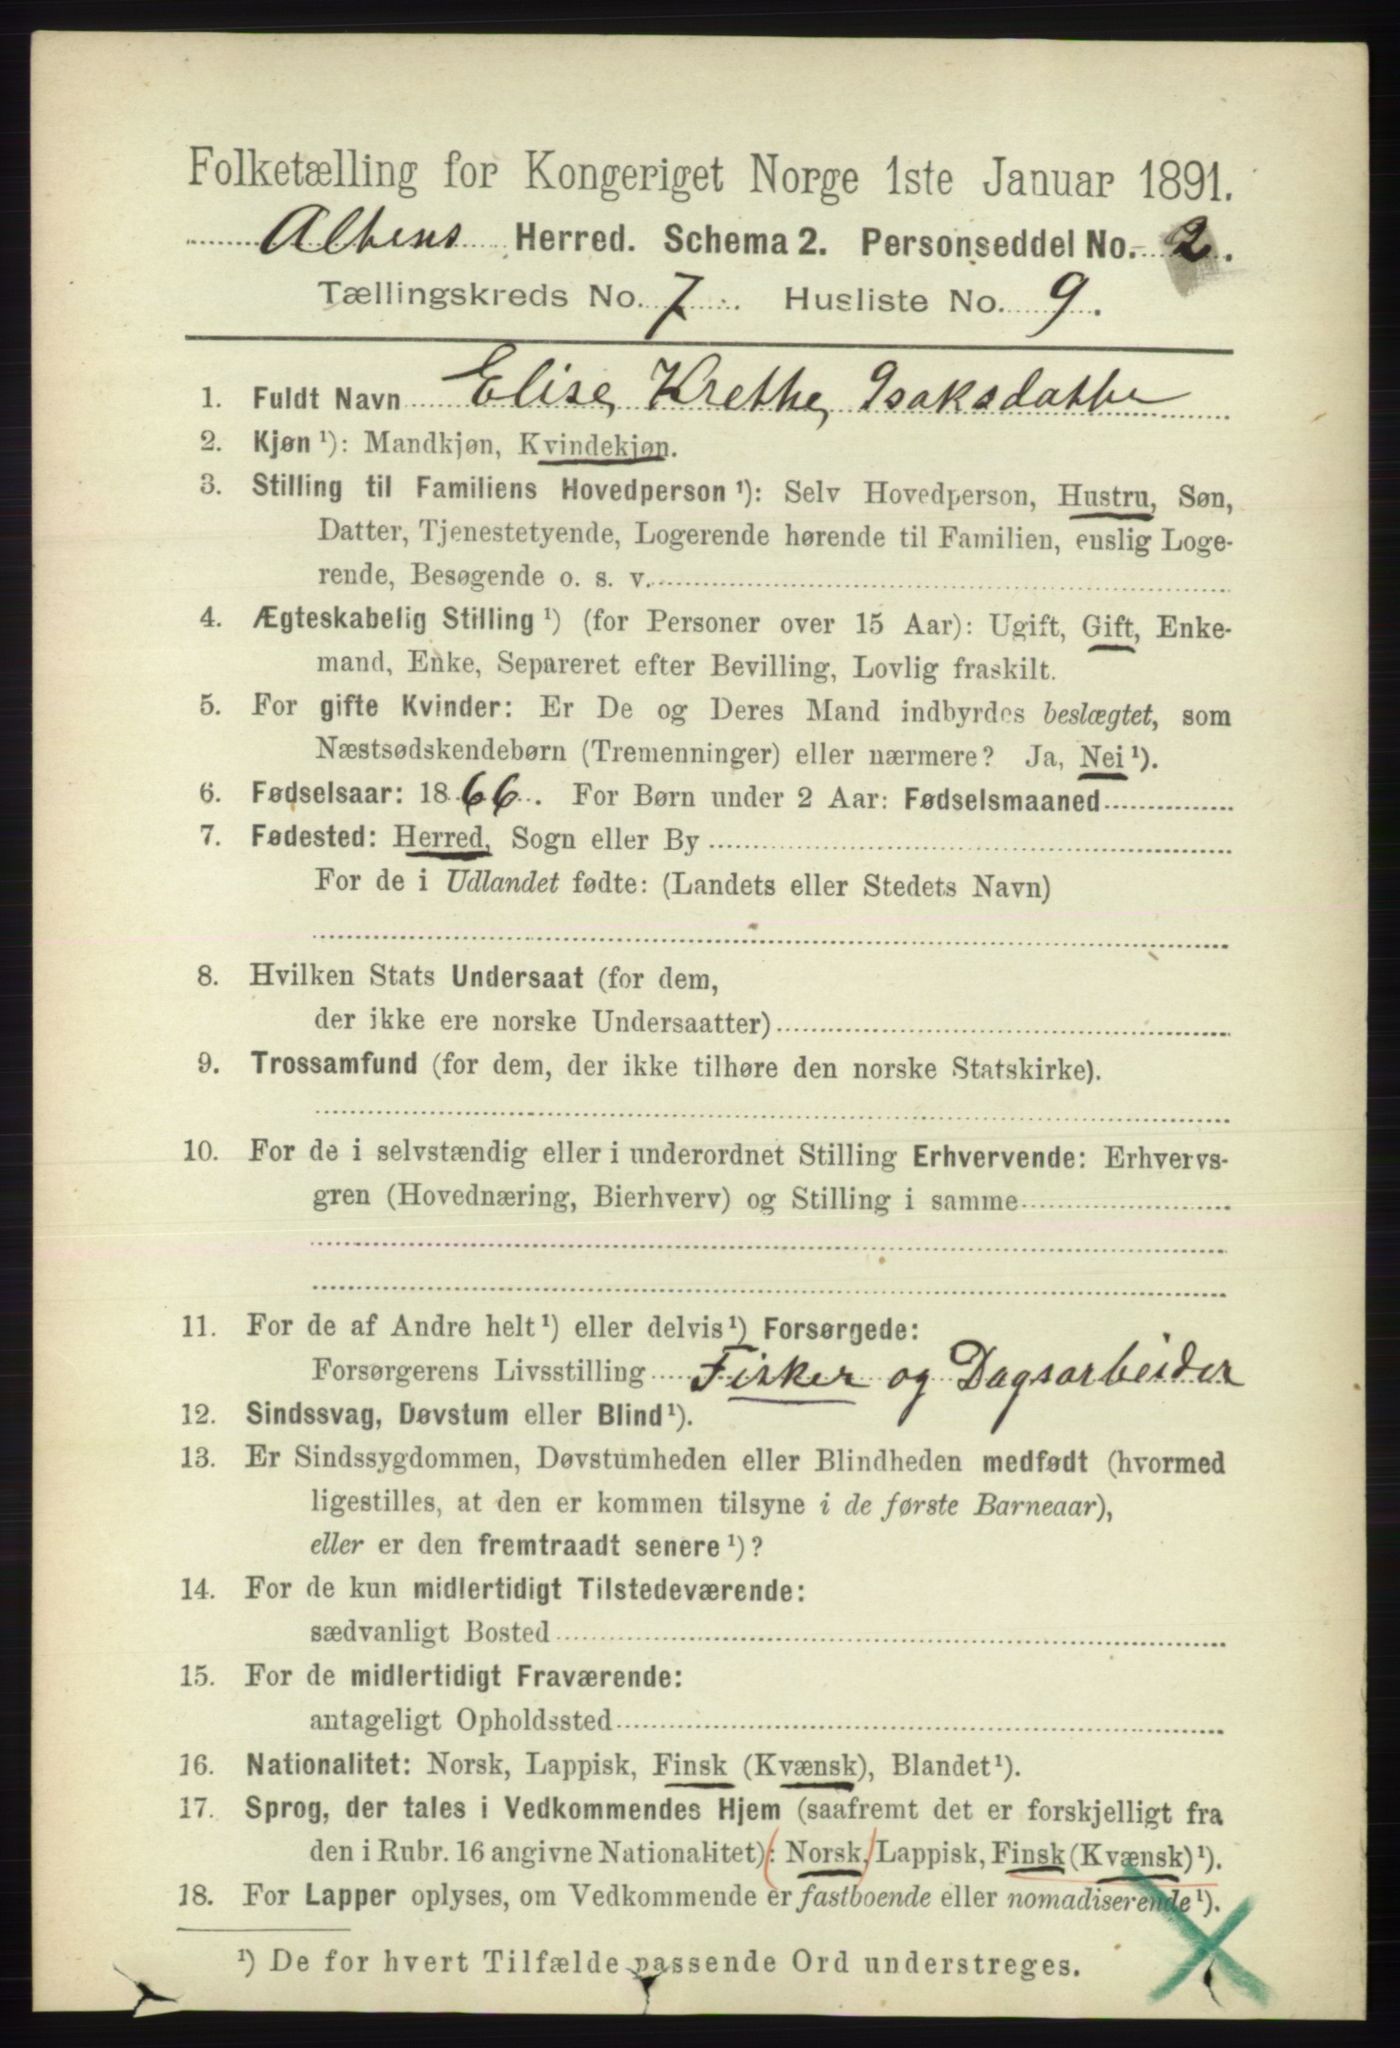 Folketælling for Kongeriget Norge 1ste Januar 1891.
Altens Herred. Schema 2. Personseddel No. 2.
Tællingskreds No. 7. Husliste No. 9.
1. Fuldt Navn Elise Krethe Isaksdatter
2. Kjøn ¹): Mandkjøn, Kvindekjøn.
3. Stilling til Familiens Hovedperson ¹): Selv Hovedperson, Hustru, Søn,
Datter, Tjenestetyende, Logerende hørende til Familien, enslig Loge-
rende, Besøgende o. s. v.
4. Ægteskabelig Stilling ¹) (for Personer over 15 Aar): Ugift, Gift, Enke-
mand, Enke, Separeret efter Bevilling, Lovlig fraskilt.
5. For gifte Kvinder: Er De og Deres Mand indbyrdes beslægtet, som
Næstsødskendebørn (Tremenninger) eller nærmere? Ja, Nei ¹).
6. Fødselsaar: 1866. For Børn under 2 Aar: Fødselsmaaned
7. Fødested: Herred, Sogn eller By
For de i Udlandet fødte: (Landets eller Stedets Navn)
8. Hvilken Stats Undersaat (for dem,
der ikke ere norske Undersaatter)
9. Trossamfund (for dem, der ikke tilhøre den norske Statskirke).
10. For de i selvstændig eller i underordnet Stilling Erhvervende: Erhvervs-
gren (Hovednæring, Bierhverv) og Stilling i samme
11. For de af Andre helt ¹) eller delvis ¹) Forsørgede:
Forsørgerens Livsstilling Fisker og Dagsarbeider
12. Sindssvag, Døvstum eller Blind ¹).
13. Er Sindssygdommen, Døvstumheden eller Blindheden medfødt (hvormed
ligestilles, at den er kommen tilsyne i de første Barneaar),
eller er den fremtraadt senere ¹)?
14. For de kun midlertidigt Tilstedeværende:
sædvanligt Bosted
15. For de midlertidigt Fraværende:
antageligt Opholdssted
16. Nationalitet: Norsk, Lappisk, Finsk (Kvænsk), Blandet ¹).
17. Sprog, der tales i Vedkommendes Hjem (saafremt det er forskjelligt fra
den i Rubr. 16 angivne Nationalitet): Norsk, Lappisk, Finsk (Kvænsk) ¹).
18. For Lapper oplyses, om Vedkommende er fastboende eller nomadiserende ¹).
¹) De for hvert Tilfælde passende Ord understreges.